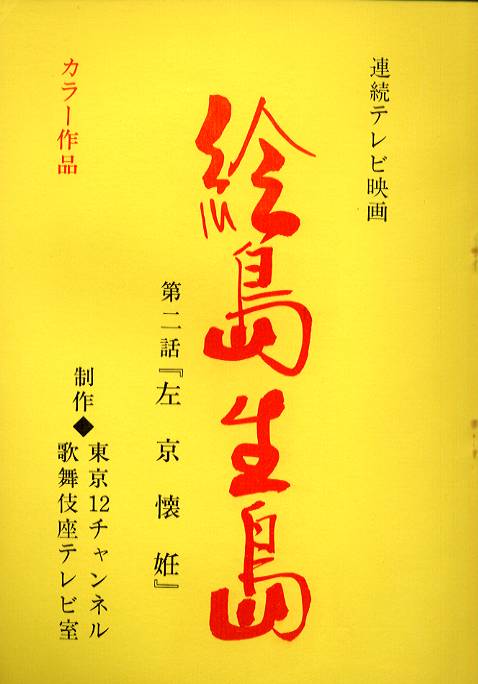 連続テレビ映画
絵島生島
第二話『左京懐妊』
カラー作品
制作◆東京12チャンネル
歌舞伎座テレビ室